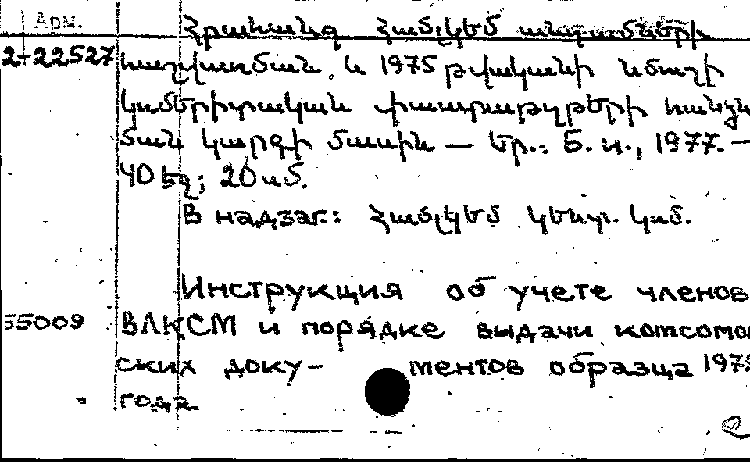 Арм.
Հրահանգ ՀԱՄԼԿԵՄ անդամների
2-22527 հաշվառման և 1975 թվականի նմուշի
կոմերիտական փաստաթղթերի հանձն
ման կարգի մասին — Եր.: Б. и., 1977. —
40 էջ; 20 սմ.
В надзаг: ՀամԼԿԵՄ Կենտ. Կոմ.
Инструкция об учете членов
55009 ВЛКСМ и порядке выдачи комсомо
ских доку- ментов образца 197
года.